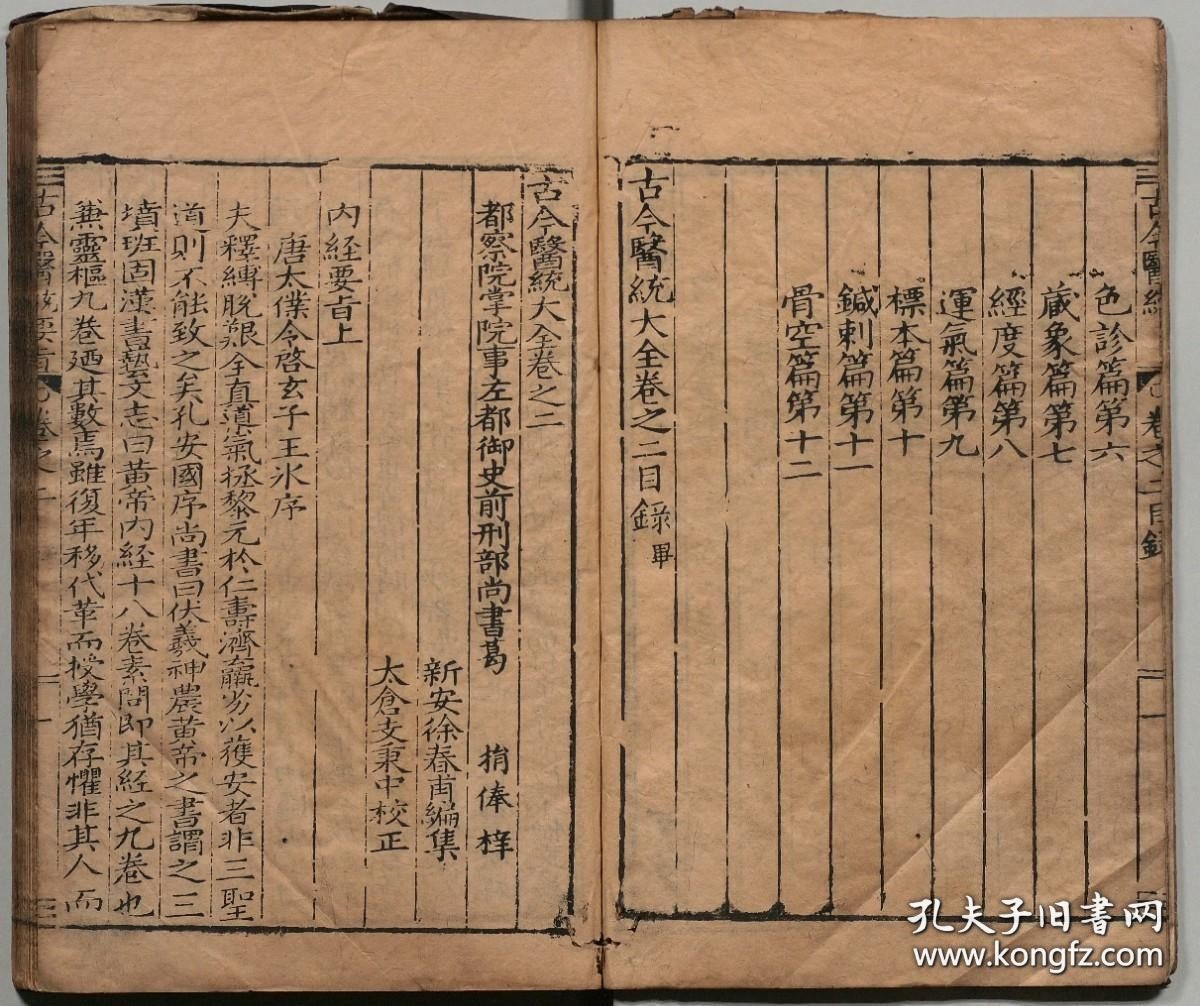 古今醫統 卷之二目錄
色診篇第六
藏象篇第七
經度篇第八
運氣篇第九
標本篇第十
鍼刺篇第十一
骨空篇第十二
古今醫統大全卷之二目錄畢
古今醫統大全卷之二
都察院掌院事左都御史前刑部尚書葛 捐俸梓
新安徐春甫編集
太倉支秉中校正
內経要旨上
唐太僕令啓玄子王氷序
夫釋縛脫艱全真導氣拯黎元於仁壽濟羸劣以獲安者非三聖
道則不能致之矣孔安國序尚書曰伏羲神農黃帝之書謂之三
墳班固漢書藝文志曰黃帝內経十八卷素問即其経之九卷也
兼靈樞九卷廼其數焉雖復年移代革而授學猶存懼非其人而
古今醫統要旨 卷之二 一
孔夫子旧书网
www.kongfz.com